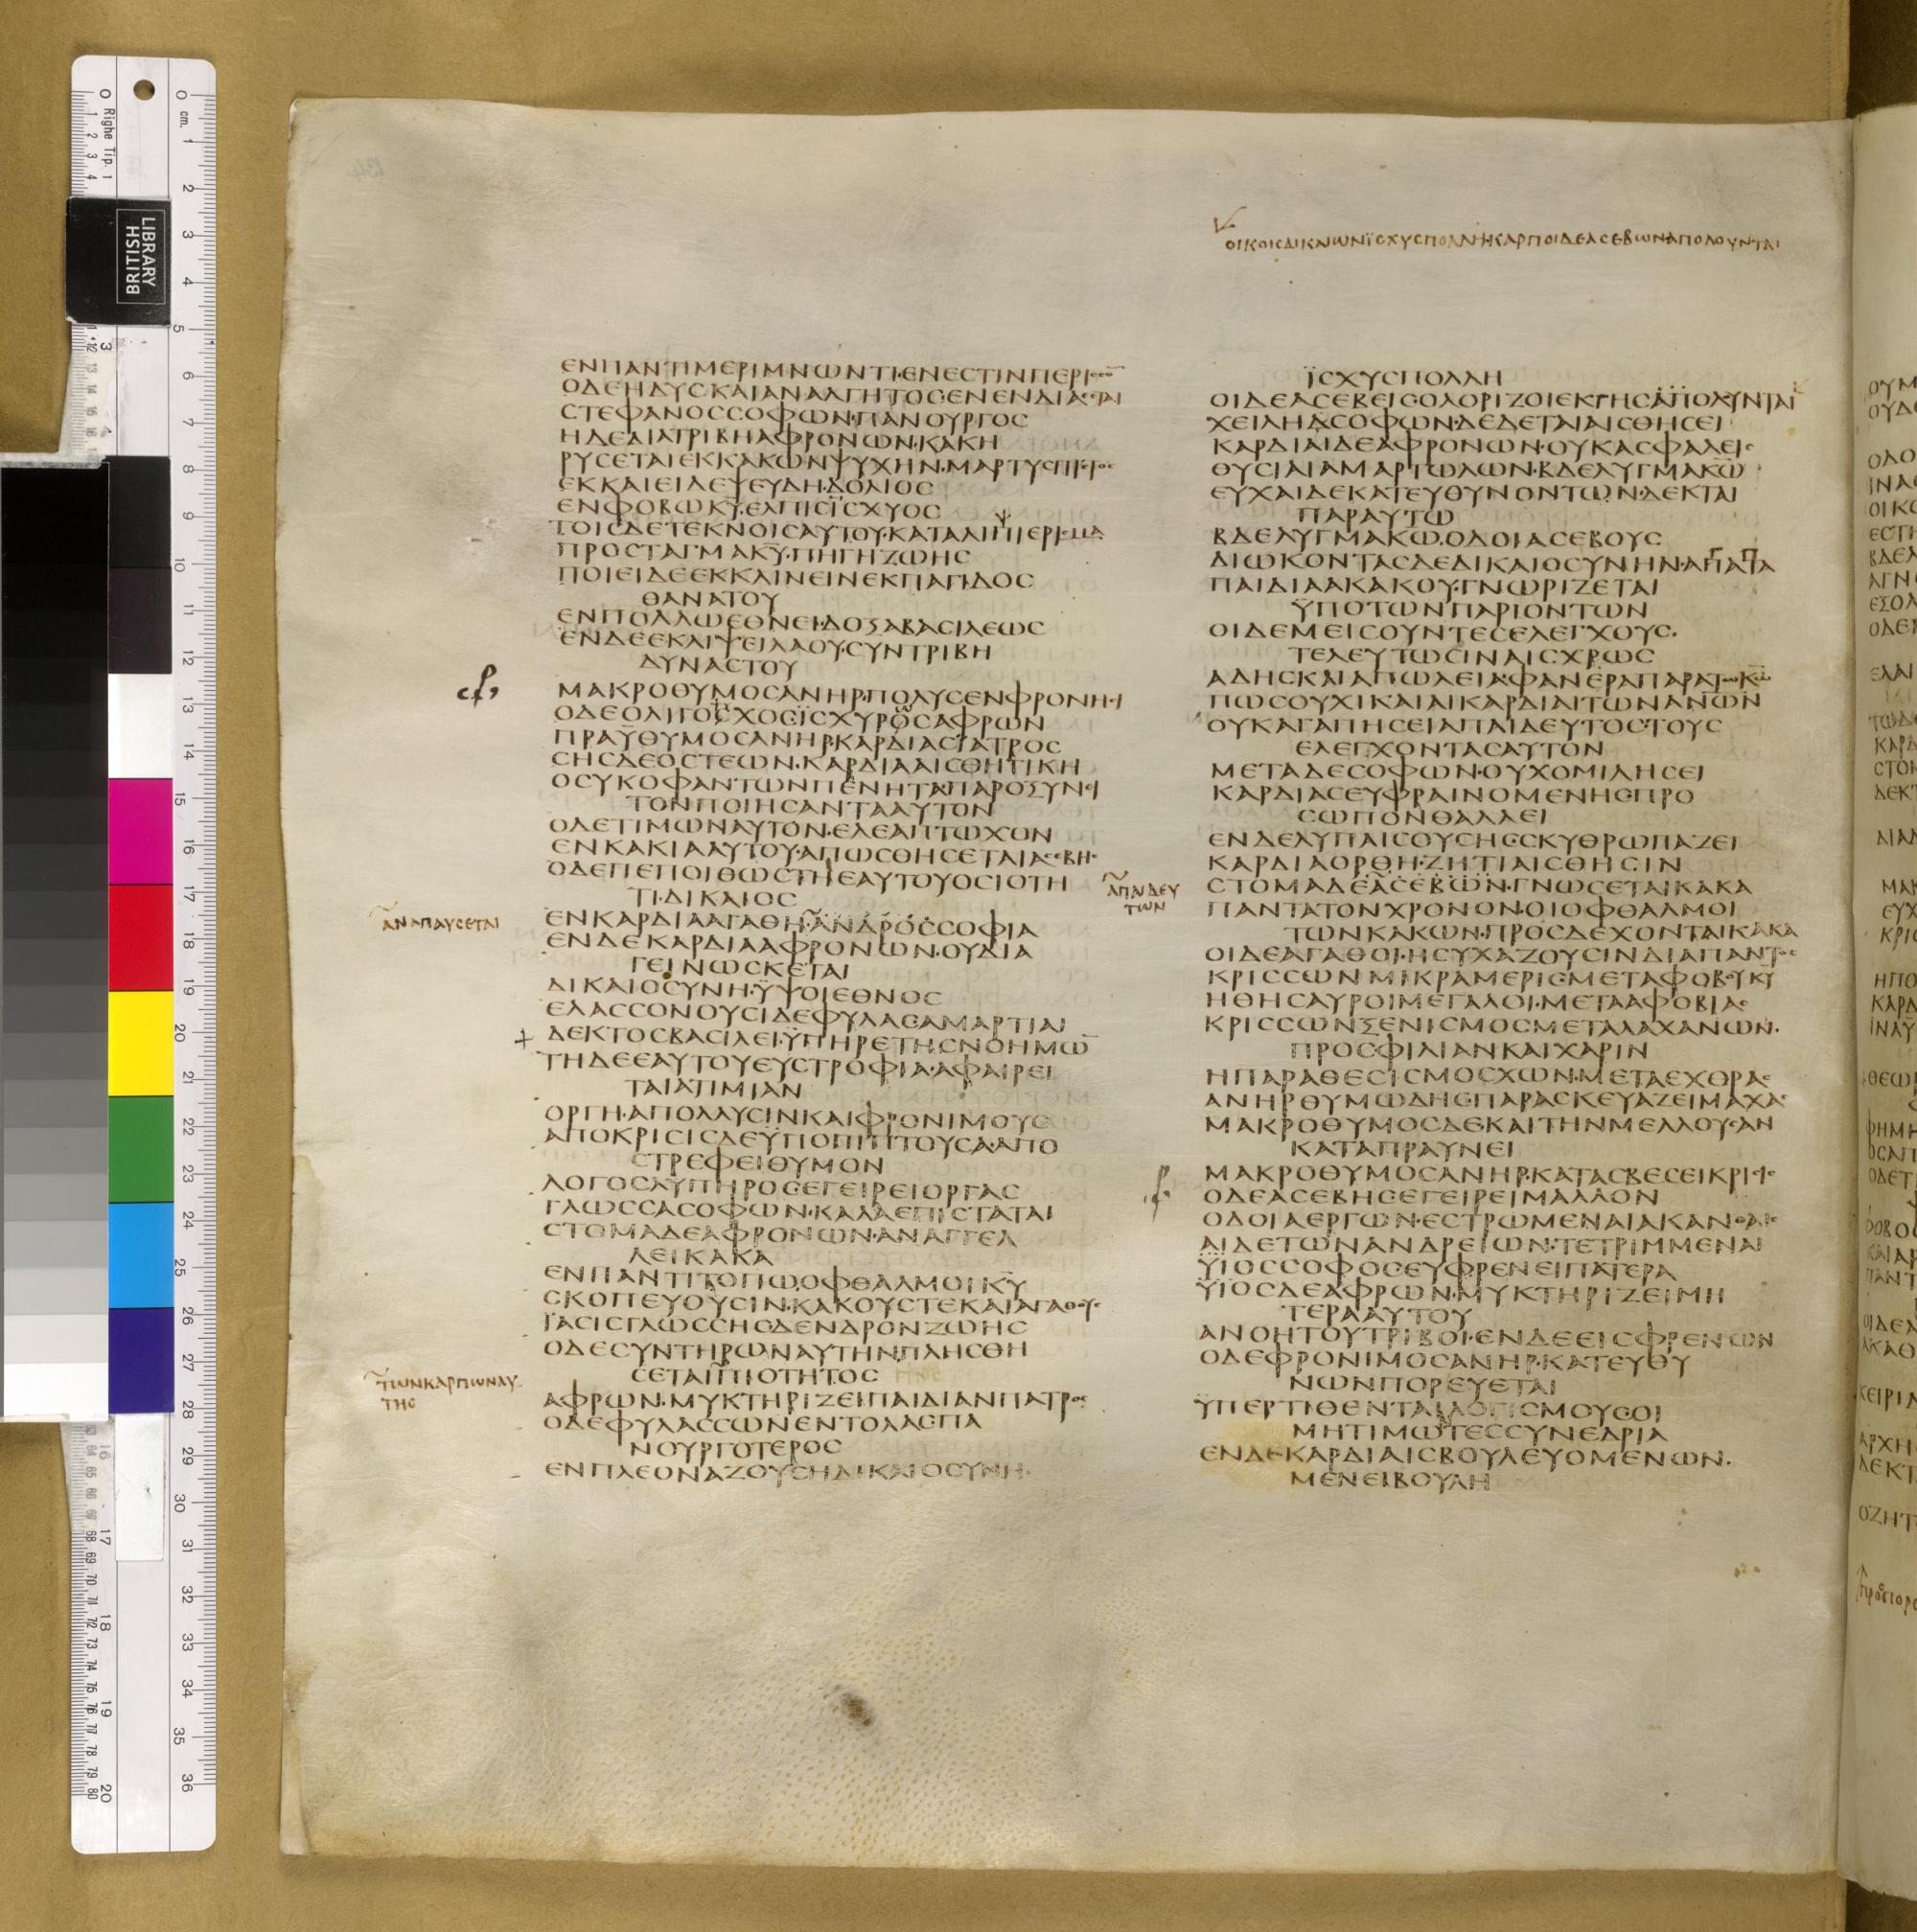 ΟΙΚΟΙΣΔΙΚΑΙΩΝΪΣΧΥΣΠΟΛΛΗΚΑΡΠΟΙΔΕΑΣΕΒΩΝΑΠΟΛΟΥΝΤΑΙ
ΕΝΠΑΝΤΙΜΕΡΙΜΝΩΝΤΙ·ΕΝΕΣΤΙΝΠΕΡΙΣΣΟΝ
ΟΔΕΗΔΥΣΚΑΙΑΝΑΛΓΗΤΟΣΕΝΕΝΔΙΑΕΣΤΑΙ
ΣΤΕΦΑΝΟΣΣΟΦΩΝ·ΠΑΝΟΥΡΓΟΣ
ΗΔΕΔΙΑΤΡΙΒΗΑΦΡΟΝΩΝ·ΚΑΚΗ
ΡΥΣΕΤΑΙΕΚΚΑΚΩΝΨΥΧΗΝ·ΜΑΡΤΥΣΠΙΣΤΟΣ
ΕΚΚΑΙΕΙΔΕΨΕΥΔΗ·ΔΟΛΙΟΣ
ΕΝΦΟΒΩΚΥ·ΕΛΠΙΣΪΣΧΥΟΣ
ΤΟΙΣΔΕΤΕΚΝΟΙΣΑΥΤΟΥ·ΚΑΤΑΛΙΠΙΕΡΙΣΜΑ
ΠΡΟΣΤΑΓΜΑΚΥ·ΠΗΓΗΖΩΗΣ
ΠΟΙΕΙΔΕΕΚΚΛΙΝΕΙΝΕΚΠΑΓΙΔΟΣ
ΘΑΝΑΤΟΥ
ΕΝΠΟΛΛΩΕΘΝΕΙ·ΔΟΞΑΒΑΣΙΛΕΩΣ
ΕΝΔΕΕΚΛΙΨΕΙΛΑΟΥ·ΣΥΝΤΡΙΒΗ
ΔΥΝΑΣΤΟΥ
ΜΑΚΡΟΘΥΜΟΣΑΝΗΡ·ΠΟΛΥΣΕΝΦΡΟΝΗΣΙ
ΟΔΕΟΛΙΓΟΣΧΟΣ·ΪΣΧΥΡΟΣΑΦΡΩΝ
ΠΡΑΫΘΥΜΟΣΑΝΗΡ·ΚΑΡΔΙΑΣΪΑΤΡΟΣ
ΣΗΣΔΕΟΣΤΕΩΝ·ΚΑΡΔΙΑΑΙΣΘΗΤΙΚΗ
ΟΣΥΚΟΦΑΝΤΩΝΠΕΝΗΤΑΠΑΡΟΞΥΝΕΙ
ΤΟΝΠΟΙΗΣΑΝΤΑΑΥΤΟΝ
ΟΔΕΤΙΜΩΝΑΥΤΟΝ·ΕΛΕΑΠΤΩΧΟΝ
ΕΝΚΑΚΙΑΑΥΤΟΥ·ΑΠΩΣΘΗΣΕΤΑΙΑΣΕΒΗΣ
ΟΔΕΠΕΠΟΙΘΩΣΤΗΕΑΥΤΟΥΟΣΙΟΤΗ
ΤΙ·ΔΙΚΑΙΟΣ
ΑΝΑΠΑΥΣΕΤΑΙ
ΕΝΚΑΡΔΙΑΑΓΑΘΗ·ΑΝΔΡΟΣΣΟΦΙΑ
ΕΝΔΕΚΑΡΔΙΑΑΦΡΟΝΩΝ·ΟΥΔΙΑ
ΓΕΙΝΩΣΚΕΤΑΙ
ΔΙΚΑΙΟΣΥΝΗ·ΫΨΟΙΕΘΝΟΣ
ΕΛΑΣΣΟΝΟΥΣΙΔΕΦΥΛΑΣΑΜΑΡΤΙΑΙ
ΔΕΚΤΟΣΒΑΣΙΛΕΙ·ΫΠΗΡΕΤΗΣΝΟΗΜΩ̅
ΤΗΔΕΕΑΥΤΟΥΕΥΣΤΡΟΦΙΑ·ΑΦΑΙΡΕΙ
ΤΑΙΑΤΙΜΙΑΝ
ΟΡΓΗ·ΑΠΟΛΛΥΣΙΝΚΑΙΦΡΟΝΙΜΟΥΣ
ΑΠΟΚΡΙΣΙΣΔΕΫΠΟΠΙΠΤΟΥΣΑ·ΑΠΟ
ΣΤΡΕΦΕΙΘΥΜΟΝ
ΛΟΓΟΣΛΥΠΗΡΟΣ·ΕΓΕΙΡΕΙΟΡΓΑΣ
ΓΛΩΣΣΑΣΟΦΩΝ·ΚΑΛΑΕΠΙΣΤΑΤΑΙ
ΣΤΟΜΑΔΕΑΦΡΟΝΩΝ·ΑΝΑΓΓΕΛ
ΛΕΙΚΑΚΑ
ΕΝΠΑΝΤΙΤΟΠΩ·ΟΦΘΑΛΜΟΙΚΥ
ΣΚΟΠΕΥΟΥΣΙΝ·ΚΑΚΟΥΣΤΕΚΑΙΑΓΑΘΟΥΣ
ΪΑΣΙΣΓΛΩΣΣΗΣ·ΔΕΝΔΡΟΝΖΩΗΣ
ΟΔΕΣΥΝΤΗΡΩΝΑΥΤΗΝ·ΠΛΗΣΘΗ
ΣΕΤΑΙΠΙΟΤΗΤΟΣ
ΤΩΝΚΑΡΠΩΝΑΥ
ΤΗΣ
ΑΦΡΩΝ·ΜΥΚΤΗΡΙΖΕΙΠΑΙΔΙΑΝΠΑΤΡΟΣ
ΟΔΕΦΥΛΑΣΣΩΝΕΝΤΟΛΑΣ·ΠΑ
ΝΟΥΡΓΟΤΕΡΟΣ
ΕΝΠΛΕΟΝΑΖΟΥΣΗΔΙΚΑΙΟΣΥΝΗ·
ΪΣΧΥΣΠΟΛΛΗ
ΟΙΔΕΑΣΕΒΕΙΣ·ΟΛΟΡΙΖΟΙΕΚΓΗΣΑΠΟΛΥΝΤΑΙ
ΧΕΙΛΗΔΣΟΦΩΝ·ΔΕΔΕΤΑΙΑΙΣΘΗΣΕΙ
ΚΑΡΔΙΑΙΔΕΑΦΡΟΝΩΝ·ΟΥΚΑΣΦΑΛΕΙΣ
ΘΥΣΙΑΙΑΜΑΡΤΩΛΩΝ·ΒΔΕΛΥΓΜΑΚΩ
ΕΥΧΑΙΔΕΚΑΤΕΥΘΥΝΟΝΤΩΝ·ΔΕΚΤΑΙ
ΠΑΡΑΥΤΩ
ΒΔΕΛΥΓΜΑΚΩ·ΟΔΟΙΑΣΕΒΟΥΣ
ΔΙΩΚΟΝΤΑΣΔΕΔΙΚΑΙΟΣΥΝΗΝ·ΑΓΑΠΑ
ΠΑΙΔΙΑΑΚΑΚΟΥ·ΓΝΩΡΙΖΕΤΑΙ
ΫΠΟΤΩΝΠΑΡΙΟΝΤΩΝ
ΟΙΔΕΜΕΙΣΟΥΝΤΕΣΕΛΕΓΧΟΥΣ·
ΤΕΛΕΥΤΩΣΙΝΑΙΣΧΡΩΣ
ΑΔΗΣΚΑΙΑΠΩΛΕΙΑ·ΦΑΝΕΡΑΠΑΡΑΤΩΚΩ
ΠΩΣΟΥΧΙΚΑΙΑΙΚΑΡΔΙΑΙΤΩΝΑΝΩΝ
ΟΥΚΑΓΑΠΗΣΕΙΑΠΑΙΔΕΥΤΟΣ·ΤΟΥΣ
ΕΛΕΓΧΟΝΤΑΣΑΥΤΟΝ
ΜΕΤΑΔΕΣΟΦΩΝ·ΟΥΧΟΜΙΛΗΣΕΙ
ΚΑΡΔΙΑΣΕΥΦΡΑΙΝΟΜΕΝΗΣ·ΠΡΟ
ΣΩΠΟΝΘΑΛΛΕΙ
ΕΝΔΕΛΥΠΑΙΣΟΥΣΗΣ·ΣΚΥΘΡΩΠΑΖΕΙ
ΚΑΡΔΙΑΟΡΘΗ·ΖΗΤΙΑΙΣΘΗΣΙΝ
ΑΠΑΙΔΕΥ
ΤΩΝ
ΣΤΟΜΑΔΕΑΣΕΒΩΝ·ΓΝΩΣΕΤΑΙΚΑΚΑ
ΠΑΝΤΑΤΟΝΧΡΟΝΟΝ·ΟΙΟΦΘΑΛΜΟΙ
ΤΩΝΚΑΚΩΝ·ΠΡΟΣΔΕΧΟΝΤΑΙΚΑΚΑ
ΟΙΔΕΑΓΑΘΟΙ·ΗΣΥΧΑΖΟΥΣΙΝΔΙΑΠΑΝΤΟΣ
ΚΡΙΣΣΩΝΜΙΚΡΑΜΕΡΙΣ·ΜΕΤΑΦΟΒΟΥΚΥ
ΗΘΗΣΑΥΡΟΙΜΕΓΑΛΟΙ·ΜΕΤΑΑΦΟΒΙΑΣ
ΚΡΙΣΣΩΝΞΕΝΙΣΜΟΣΜΕΤΑΛΑΧΑΝΩΝ·
ΠΡΟΣΦΙΛΙΑΝΚΑΙΧΑΡΙΝ
ΗΠΑΡΑΘΕΣΙΣΜΟΣΧΩΝ·ΜΕΤΑΕΧΘΡΑΣ
ΑΝΗΡΘΥΜΩΔΗΣ·ΠΑΡΑΣΚΕΥΑΖΕΙΜΑΧΑΣ
ΜΑΚΡΟΘΥΜΟΣΔΕΚΑΙΤΗΝΜΕΛΛΟΥΣΑΝ
ΚΑΤΑΠΡΑΥΝΕΙ
ΜΑΚΡΟΘΥΜΟΣΑΝΗΡ·ΚΑΤΑΣΒΕΣΕΙΚΡΙΣΙΣ
ΟΔΕΑΣΕΒΗΣ·ΕΓΕΙΡΕΙΜΑΛΛΟΝ
ΟΔΟΙΑΕΡΓΩΝ·ΕΣΤΡΩΜΕΝΑΙΑΚΑΝΘΑΙΣ
ΑΙΔΕΤΩΝΑΝΔΡΕΙΩΝ·ΤΕΤΡΙΜΜΕΝΑΙ
ΫΙΟΣΣΟΦΟΣ·ΕΥΦΡΕΝΕΙΠΑΤΕΡΑ
ΫΙΟΣΔΕΑΦΡΩΝ·ΜΥΚΤΗΡΙΖΕΙΜΗ
ΤΕΡΑΑΥΤΟΥ
ΑΝΟΗΤΟΥΤΡΙΒΟΙ·ΕΝΔΕΕΙΣΦΡΕΝΩΝ
ΟΔΕΦΡΟΝΙΜΟΣΑΝΗΡ·ΚΑΤΕΥΘΥ
ΝΩΝΠΟΡΕΥΕΤΑΙ
ΫΠΕΡΤΙΘΕΝΤΑΙΛΟΓΙΣΜΟΥΣ·ΟΙ
ΜΗΤΙΜΩΤΕΣΣΥΝΕΔΡΙΑ
ΕΝΔΕΚΑΡΔΙΑΙΣΒΟΥΛΕΥΟΜΕΝΩΝ·
ΜΕΝΕΙΒΟΥΛΗ
BRITISH
LIBRARY
Righe Tip. 1
cm.